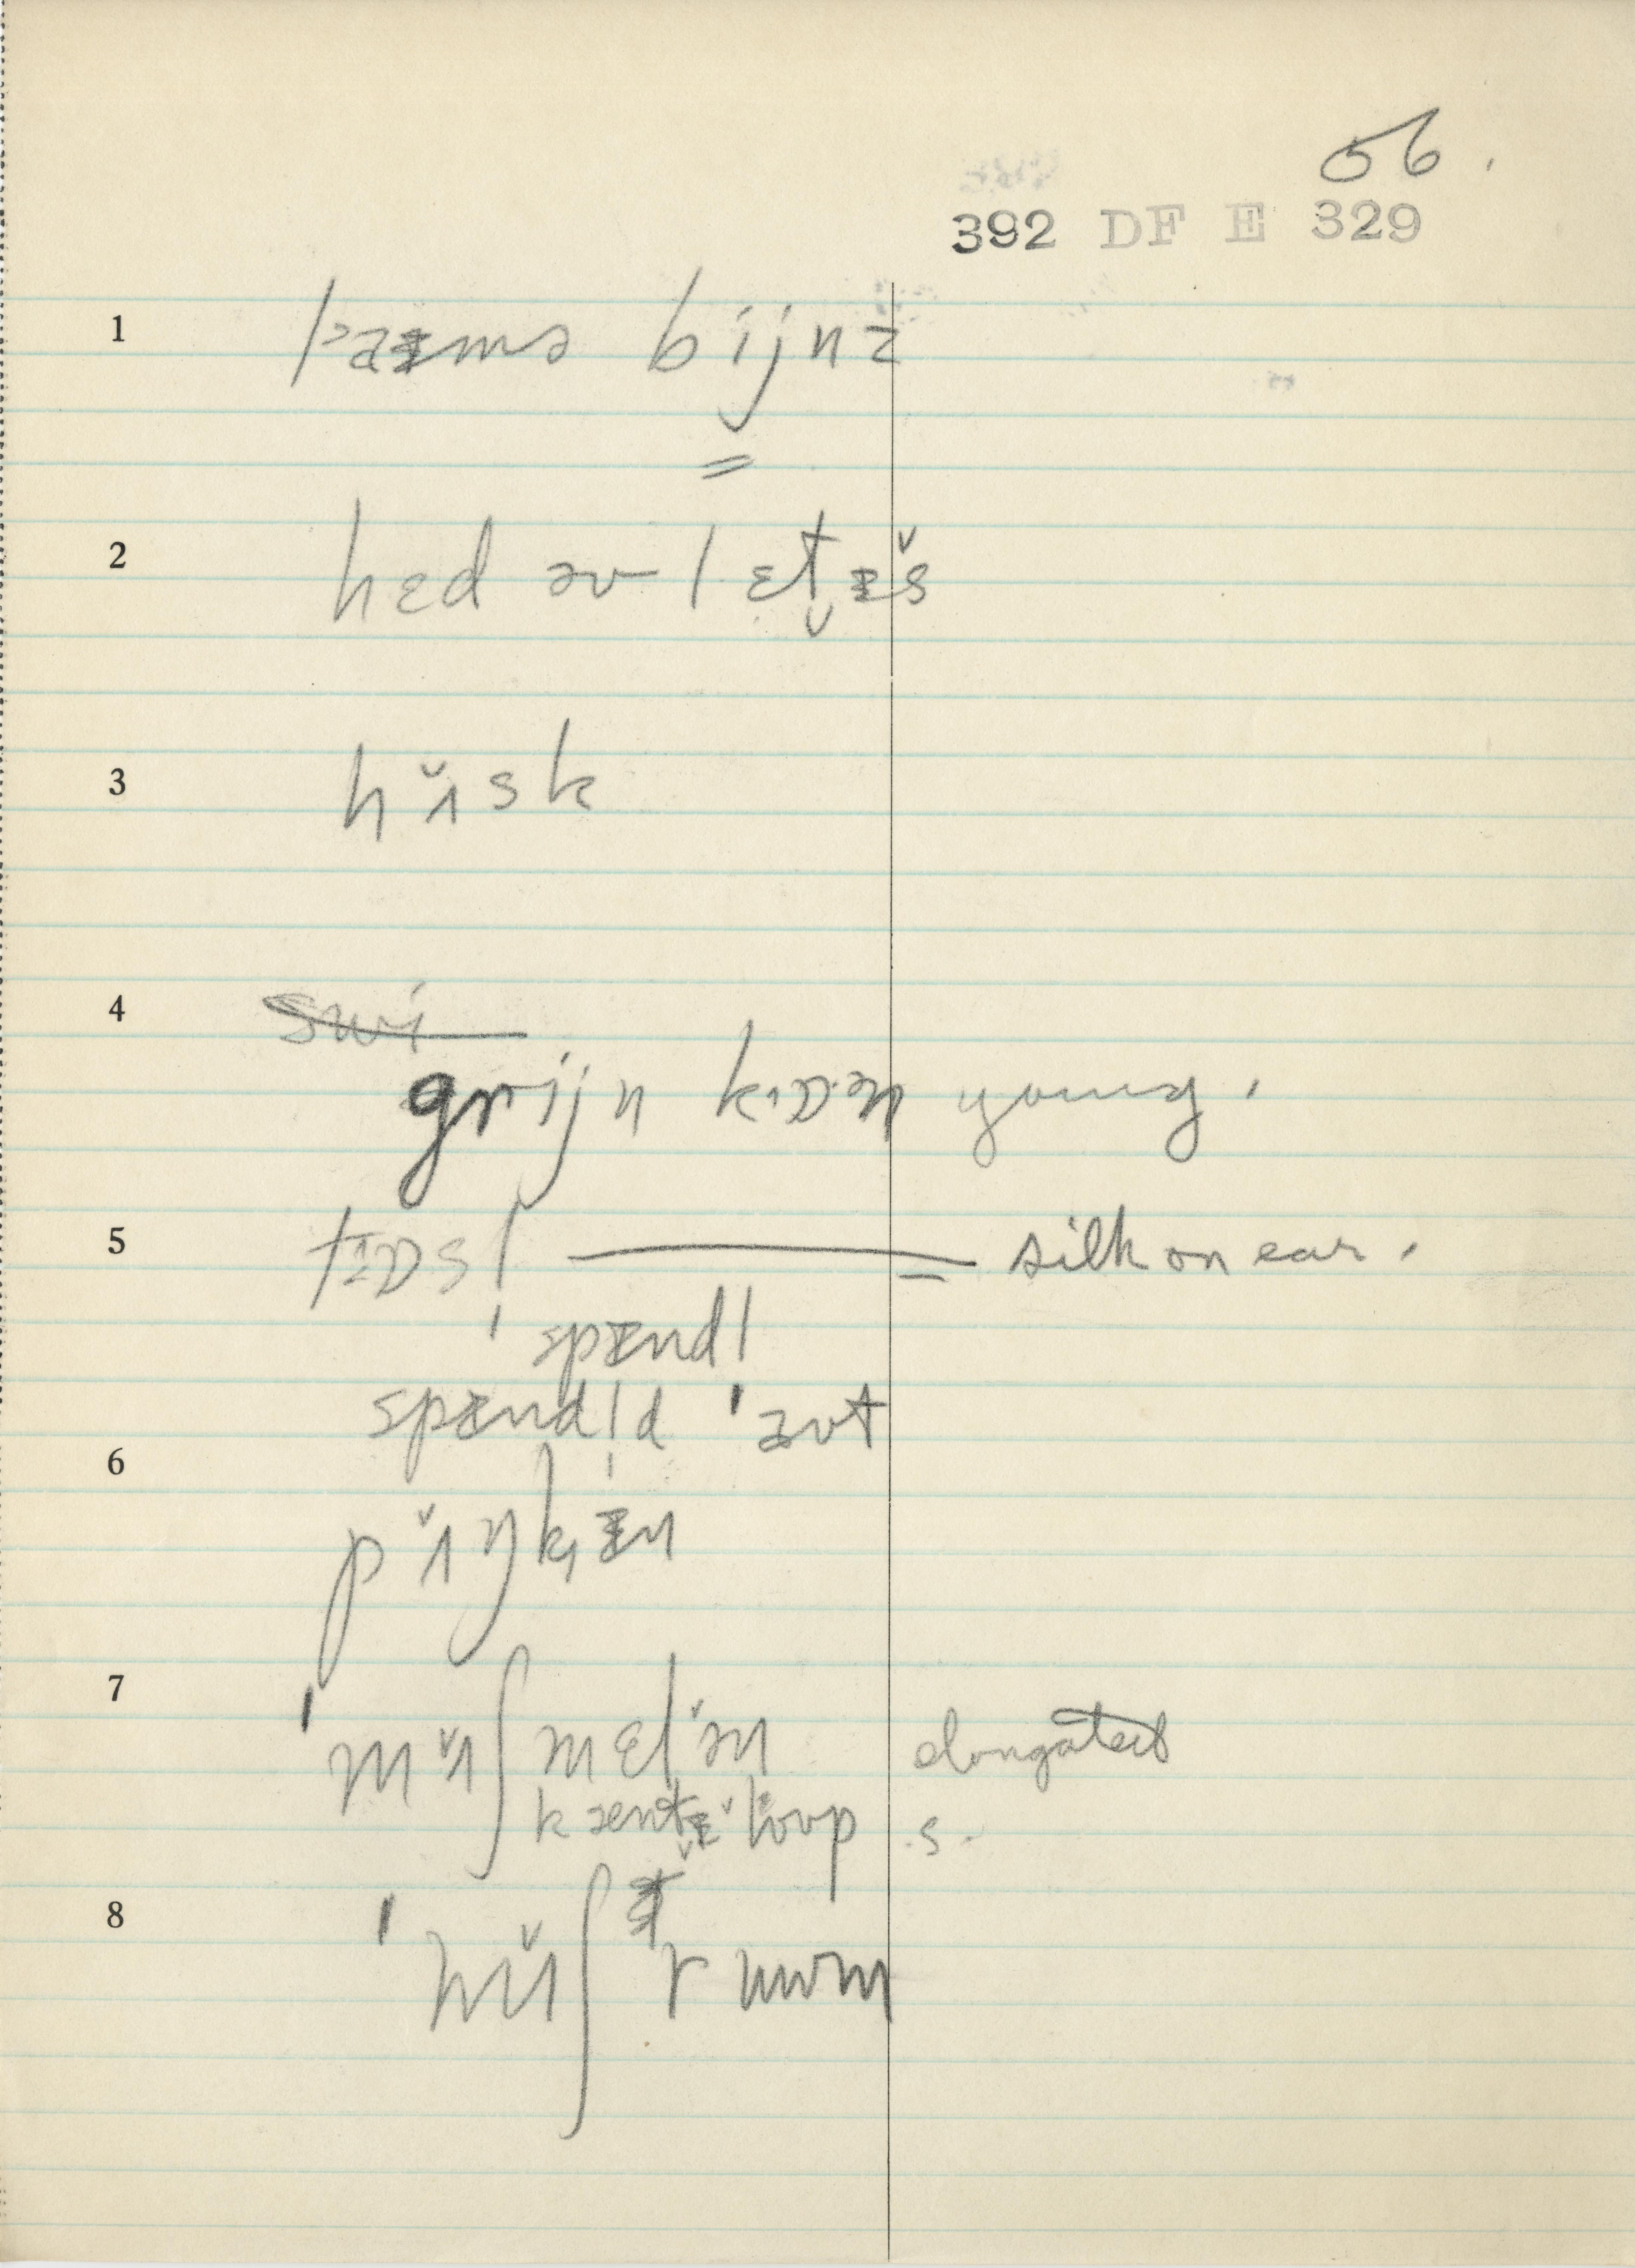 56.
392 DF E 329
1
bijnz
=
2 hɛd əv lɛtɪ̵š
3 hʌ̆sk
4 swi
grijn kɒən young.
5 tɒsl̩ = silk on ear.
spɪ̵ndl
spɪ̵ndl̩d 'aʊt
6
pʌ̆ŋkɪ̵n
7 'mʌ̆ʃmɛlən elongated
kæntəloʊp s.
8 'mʌ̆ʃrʊwm